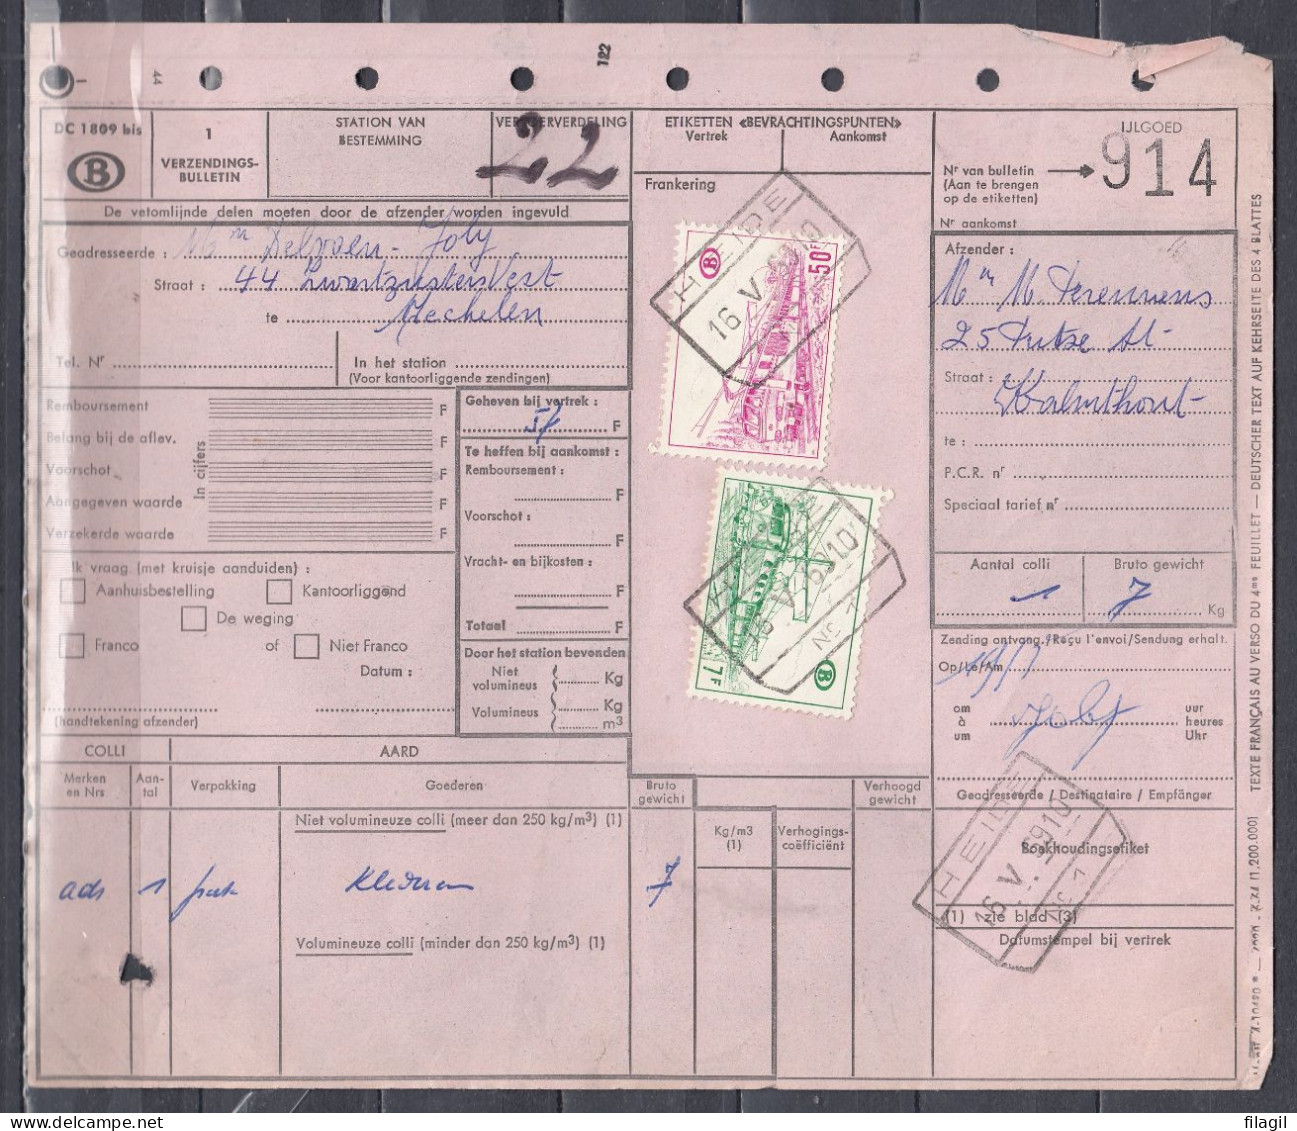 44
122
DC 1809 bis
B
1
VERZENDINGS-
BULLETIN
STATION VAN
BESTEMMING
22
ETIKETTEN «BEVRACHTINGSPUNTEN»
Vertrek
Aankomst
IJLGOED
Nr van bulletin
(Aan te brengen
op de etiketten)
914
Nr aankomst
De vetomlijnde delen moeten door de afzender worden ingevuld
Geadresseerde : Mm Delvaen - Joly
Straat : 44 Zwartzustersvest
te Mechelen
Tel. Nr
In het station
(Voor kantoorliggende zendingen)
Frankering
HEIDE
16 V 6910
50F
B
HEIDE
16 V 6910
No 1
7F
B
Afzender :
Mm M.
25
Straat : Kalmthout
te :
P.C.R. nr
Speciaal tarief nr
Remboursement F
Belang bij de aflev. F
Voorschot F
Aangegeven waarde F
Verzekerde waarde F
In cijfers
Geheven bij vertrek :
57 F
Te heffen bij aankomst :
Remboursement :
F
Voorschot :
F
Vracht- en bijkosten :
F
Totaal F
Aantal colli
1
Bruto gewicht
7 Kg
Ik vraag (met kruisje aanduiden) :
Aanhuisbestelling
Kantoorliggend
De weging
Franco
of
Niet Franco
Datum :
(handtekening afzender)
Door het station bevonden
Niet
volumineus
Kg
Volumineus
Kg
m3
Zending ontvang./Reçu l'envoi/Sendung erhalt.
Op/Le/Am
om
à
um
uur
heures
Uhr
Geadresseerde / Destinataire / Empfänger
COLLI
AARD
Merken
en Nrs
Aan-
tal
Verpakking
Goederen
Bruto
gewicht
Verhoogd
gewicht
Niet volumineuze colli (meer dan 250 kg/m3) (1)
Kg/m3
(1)
Verhogings-
coëfficiënt
ads 1 pak Klederen 7
Volumineuze colli (minder dan 250 kg/m3) (1)
Boekhoudingsetiket
HEIDE
16 V 6910
No 1
(1) zie blad (3)
Datumstempel bij vertrek
TEXTE FRANÇAIS AU VERSO DU 4me FEUILLET — DEUTSCHER TEXT AUF KEHRSEITE DES 4 BLATTES
(1.200.000)
filagil